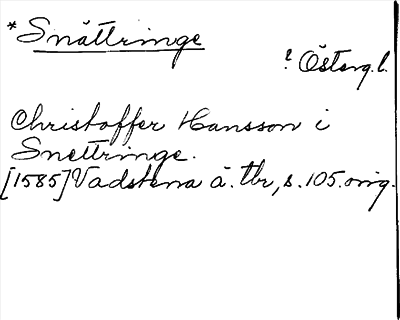 *Snättringe
? Österg.l.
Christoffer Hansson i
Snettringe.
[1585] Vadstena ä. tbr, s. 105. orig.